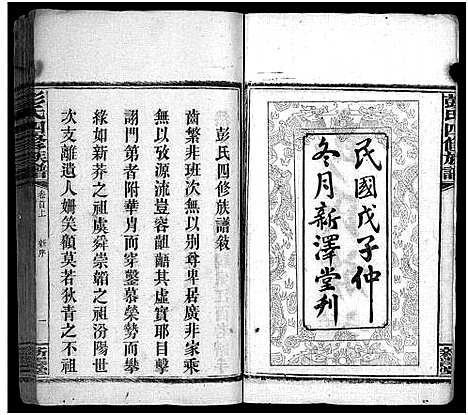 彭氏四修族譜
民國戊子仲
冬月新澤堂刋
彭氏四修族譜敘
齒繁非班次無以別尊卑居廣非家乘
無以攷源流豈容齟齬其虛實耶目擊
詡門第者附華胄而穿鑿慕榮勢而攀
緣如新莽之祖虞舜崇韜之祖汾陽世
次支離遺人姗笑顧莫若狄青之不祖
彭氏四修族譜
卷首上
新序
一